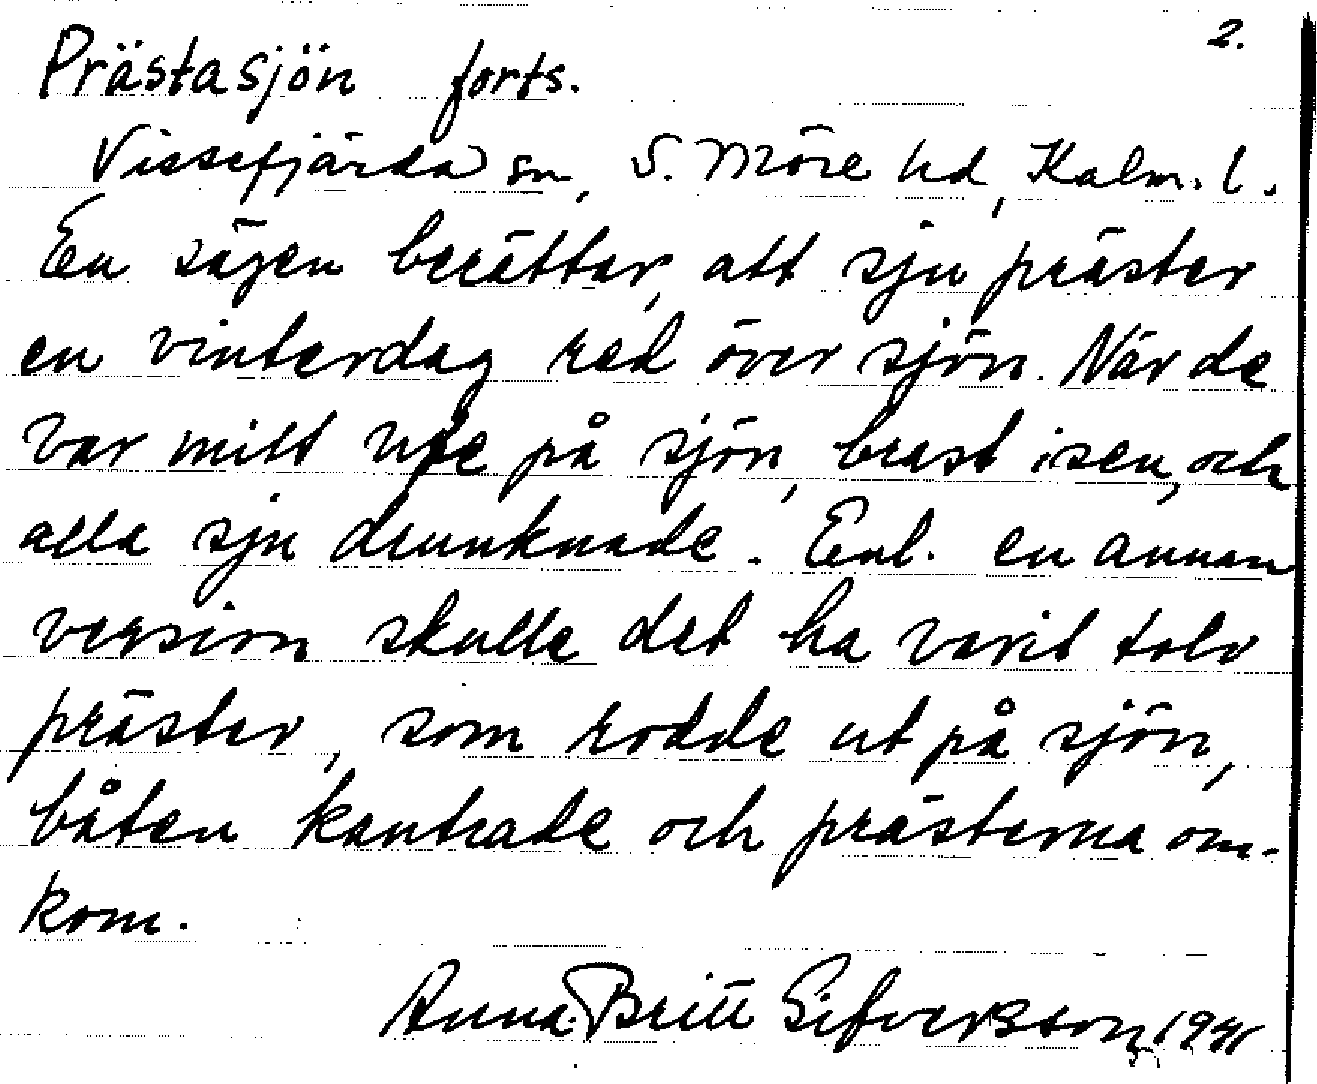 2.
Prästasjön forts.
Vissefjärda sn, S. Möre hd, Kalm. l.
En sägen berättar, att sju präster
en vinterdag red över sjön. När de
var mitt ute på sjön, brast isen, och
alla sju drunknade. Enl. en annan
version skulle det ha varit tolv
präster, som rodde ut på sjön,
båten kantrade och prästerna om-
kom.
Anna-Britt Sifversson 1941